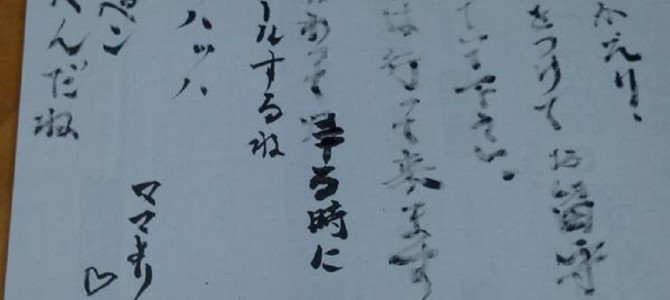 かえり、
をつけて お留守
ていて下さい。
行って来ます
わって る時に
ールするね
ハッハ
ペン
へんだね
ママより
♡